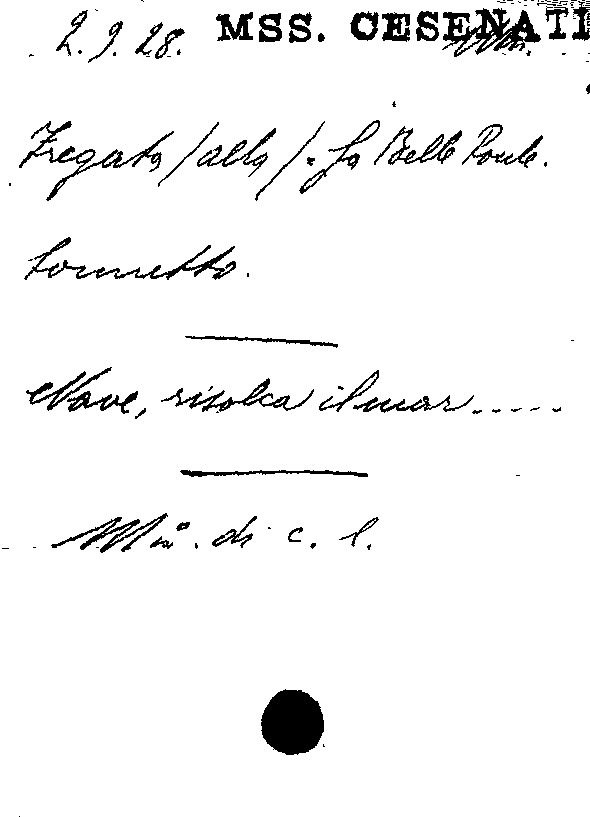 2.9.28. MSS. CESENATI Mss.
Fregata /alla/ "La Belle Poule.
Sonnetto.
Nave, risolca il mar.....
Ms. di c. 1.